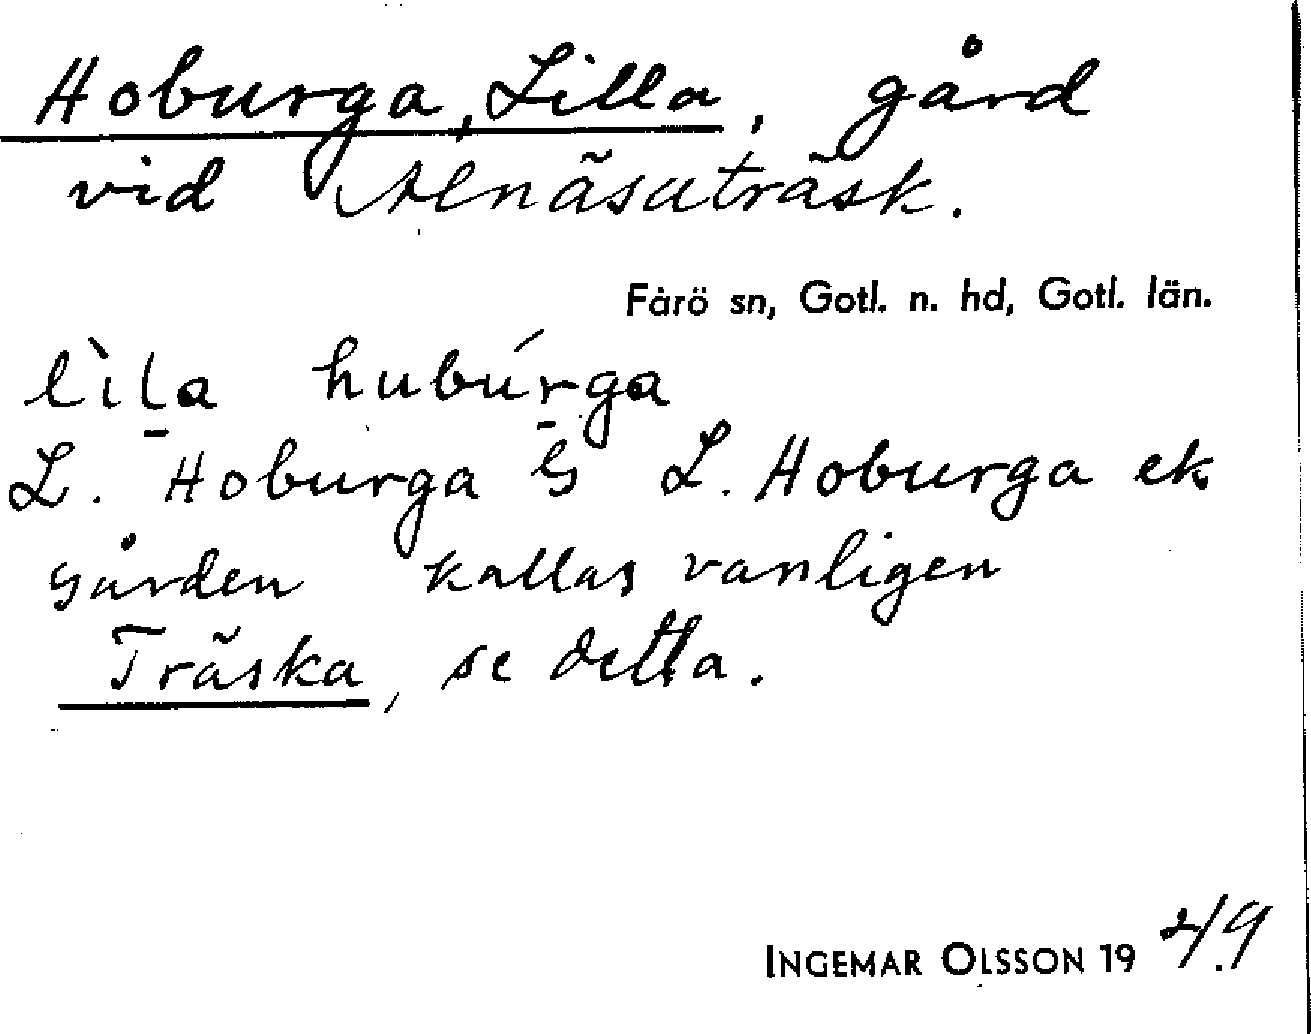 Hoburga, Lilla, gård
vid Alnäsaträsk.
Fårö sn, Gotl. n. hd, Gotl. län.
lìla hubúrga
L. Hoburga G L. Hoburga ek
Gården kallas vanligen
Träska, se detta.
INGEMAR OLSSON 19 49